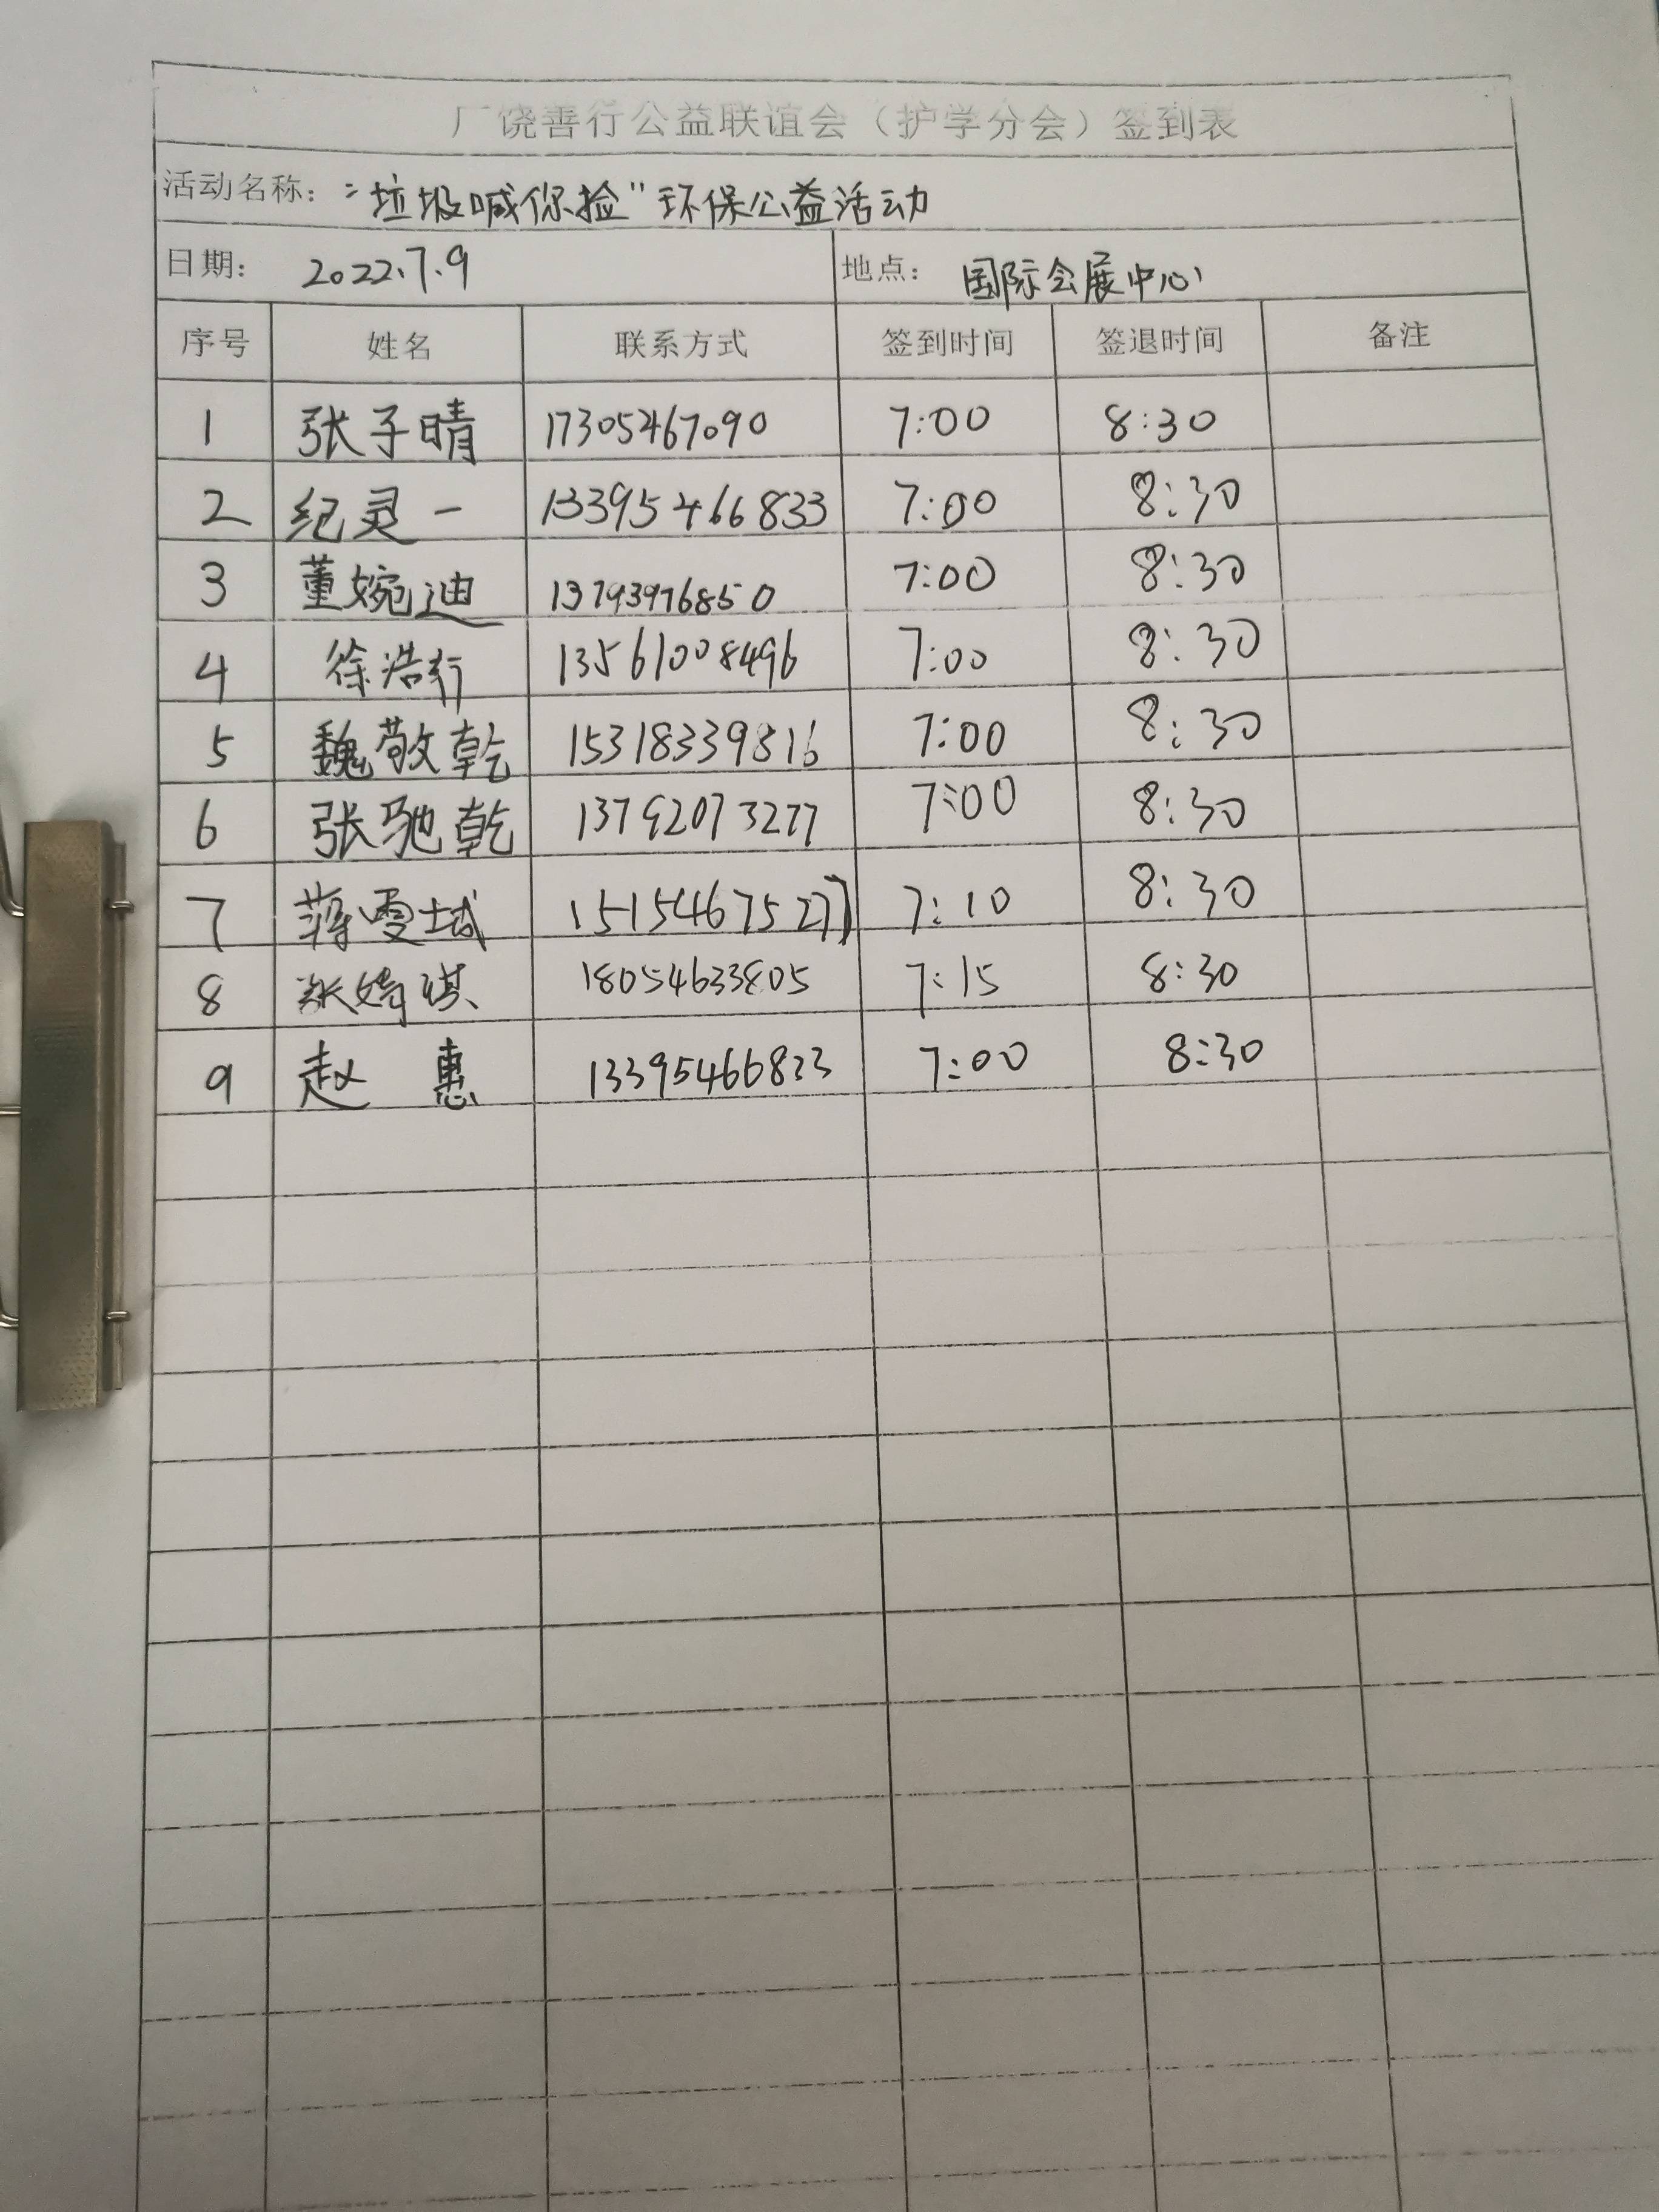 广饶善行公益联谊会（护学分会）签到表
活动名称："垃圾喊你捡"环保公益活动
日期：2022.7.9 地点：国际会展中心
序号 姓名 联系方式 签到时间 签退时间 备注
1 张子晴 17305467090 7:00 8:30
2 纪灵一 13395466833 7:00 8:30
3 董婉迪 13793976850 7:00 8:30
4 徐浩行 13561008496 7:00 8:30
5 魏敬乾 15318339816 7:00 8:30
6 张驰乾 13792073277 7:00 8:30
7 蒋雯域 15154675277 7:10 8:30
8 张婍祺 18054633805 7:15 8:30
9 赵惠 13395466833 7:00 8:30